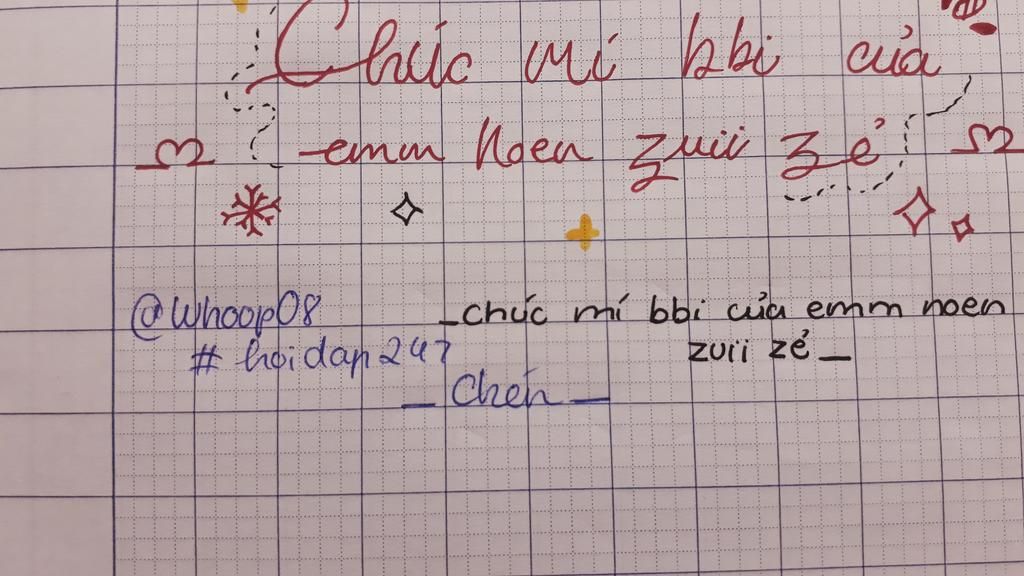 Chúc mí bbi của
-emm noen zuii zẻ
@Whoop08
_chúc mí bbi của emm noen
# hoidap247
zuii zẻ_
_ Chén _